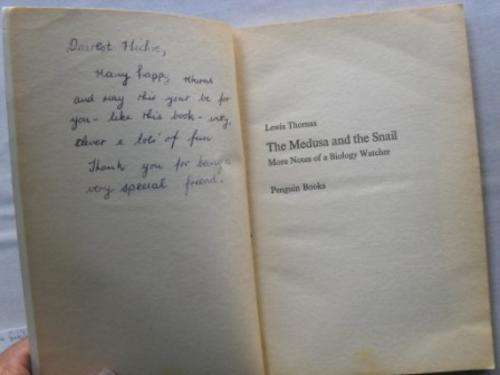 Dearest
Many happy returns
and may this year be for
you - like this book - witty,
clever & lots of fun
Thank you for being a
very special friend.
Lewis Thomas
The Medusa and the Snail
More Notes of a Biology Watcher
Penguin Books